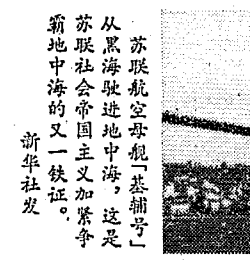 苏联航空母舰「基辅号」
从黑海驶进地中海，这是
苏联社会帝国主义加紧争
霸地中海的又一铁证。
新华社发